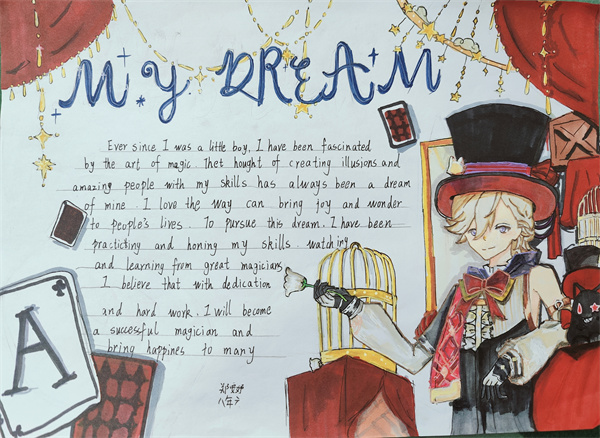 MY DREAM
Ever since I was a little boy, I have been fascinated
by the art of magic. Thet hought of creating illusions and
amazing people with my skills has always been a dream
of mine. I love the way can bring joy and wonder
to people's lives. To pursue this dream. I have been
practicting and honing my skills. watching
and learning from great magicians
I believe that with dedication
and hard work. I will become
a successful magician and
bring happines to many
A